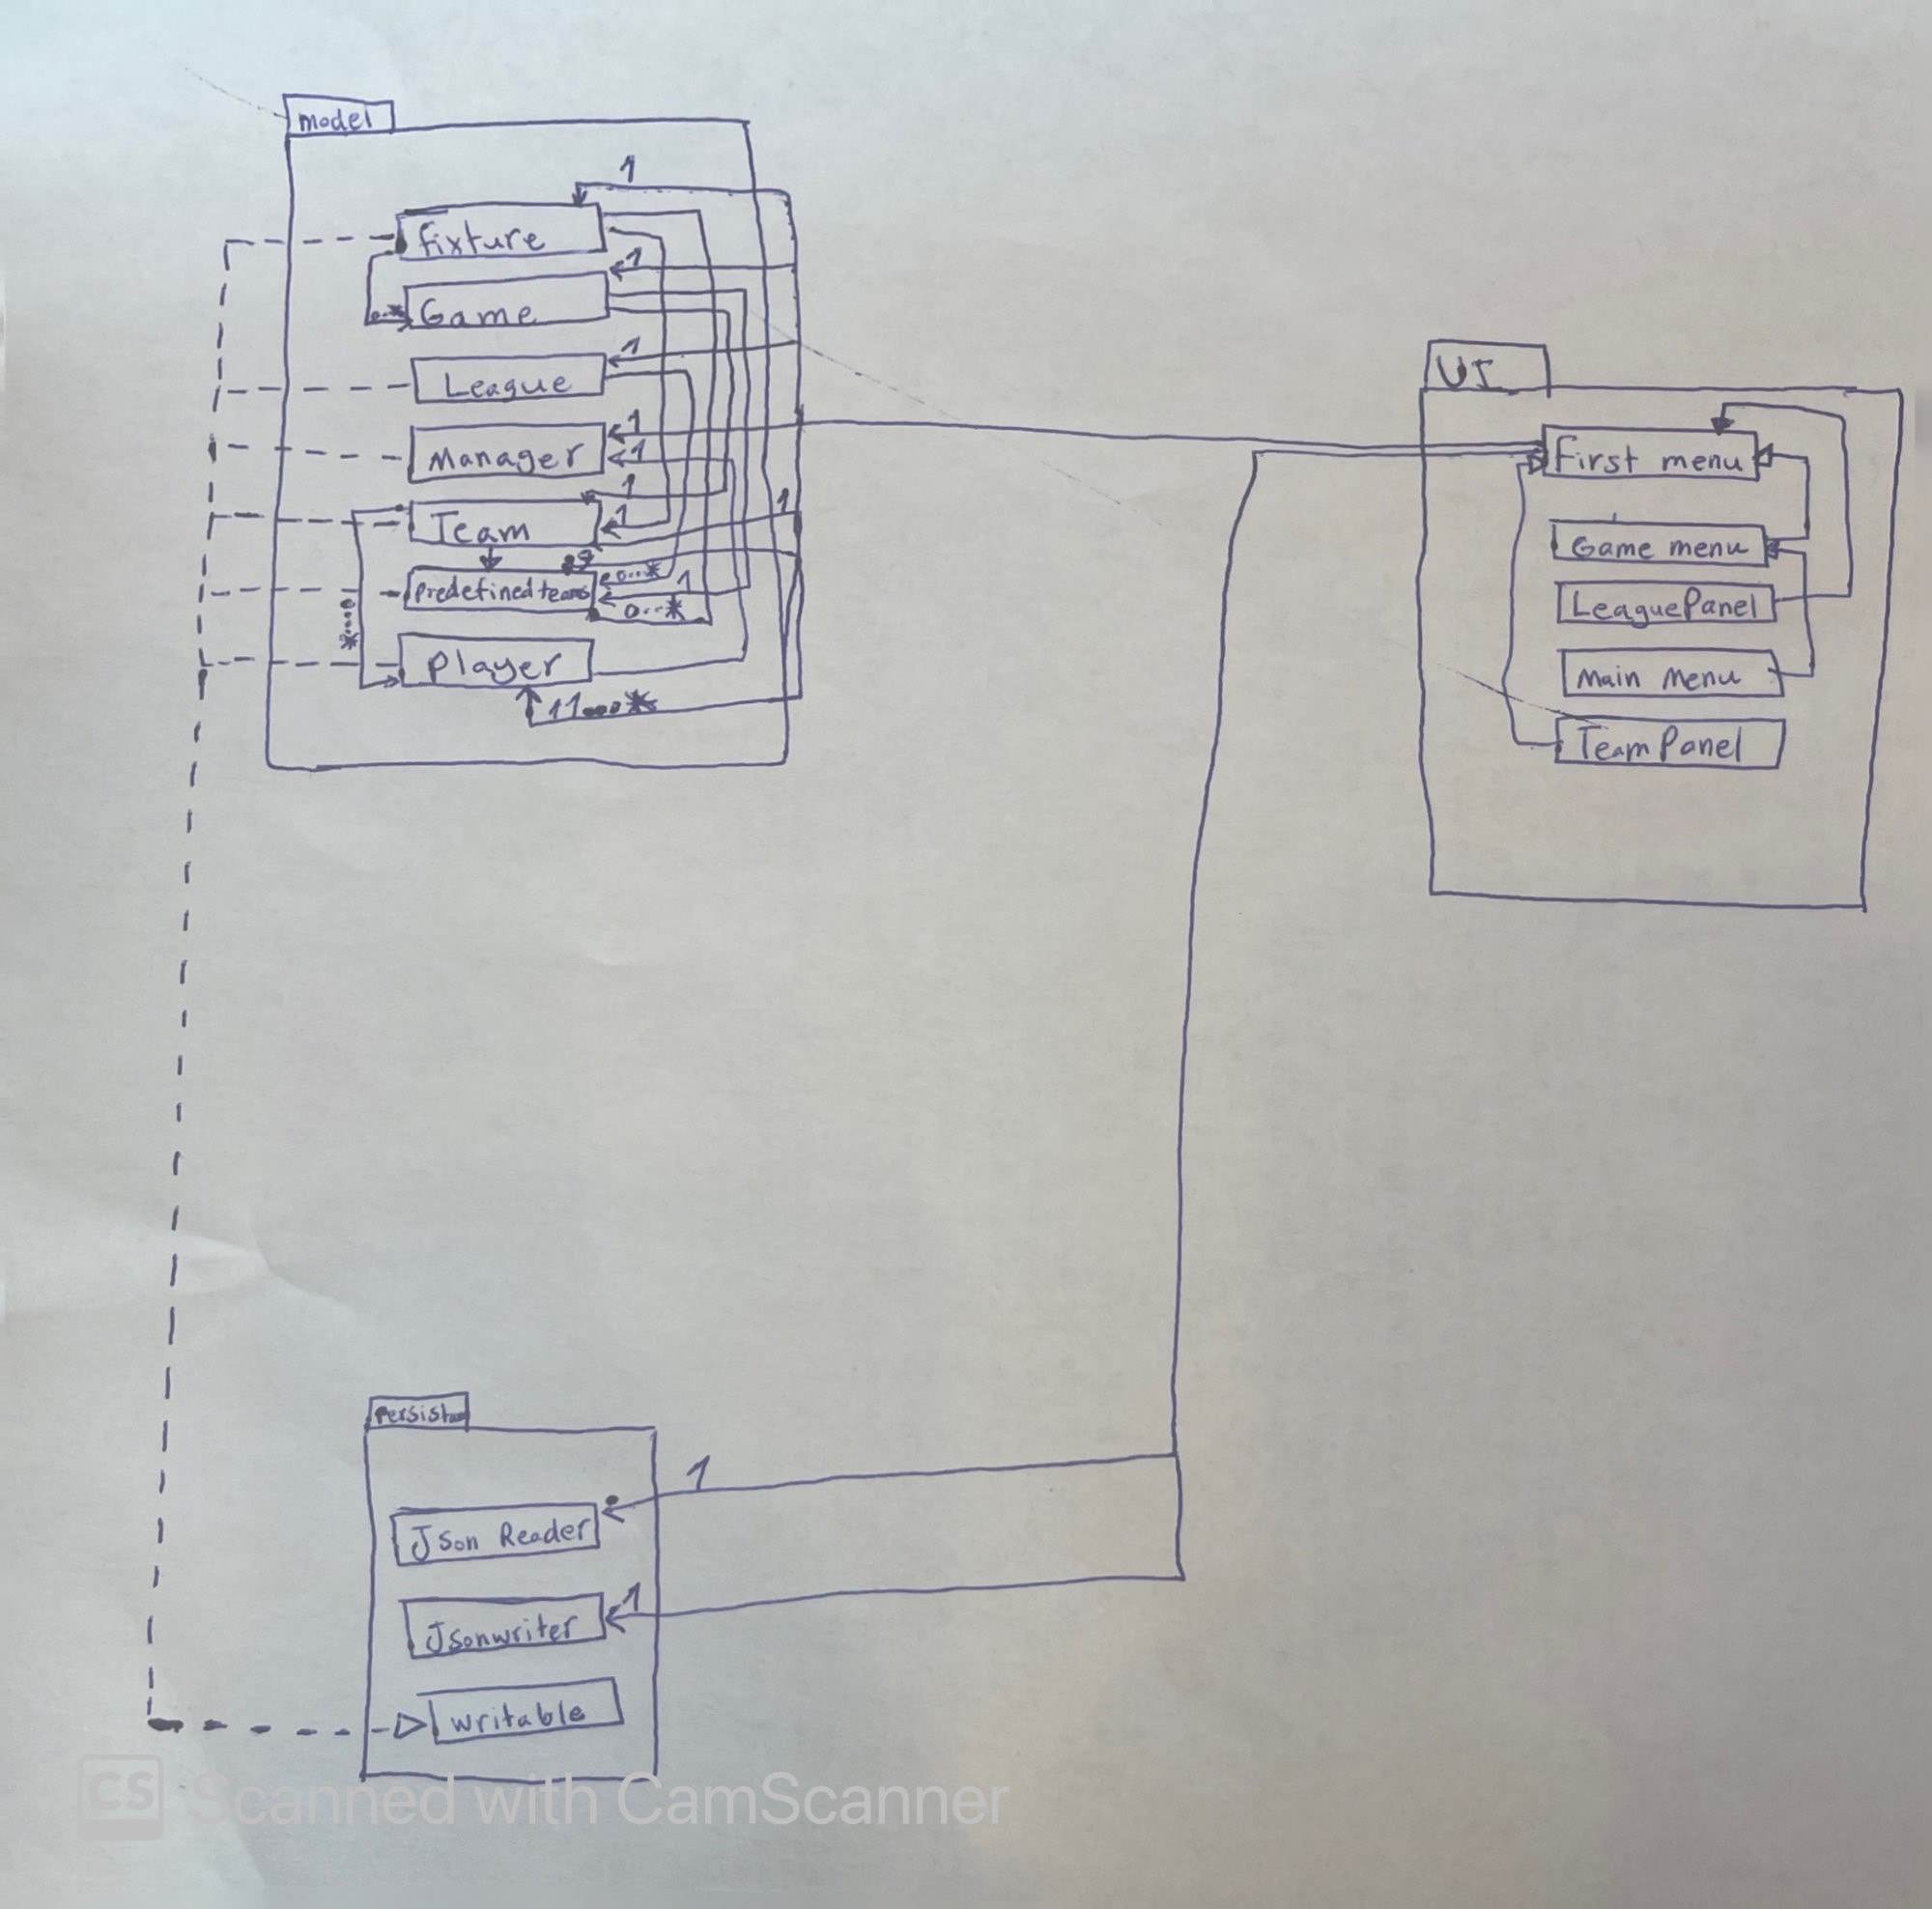 model
1
fixture
1
0..*
Game
1
League
1
Manager
1
1
1
1
Team
0...*
predefinedteams
1
0...*
Player
11...*
UI
First menu
Game menu
LeaguePanel
Main Menu
TeamPanel
1
Json Reader
1
Jsonwriter
writable
CS Scanned with CamScanner